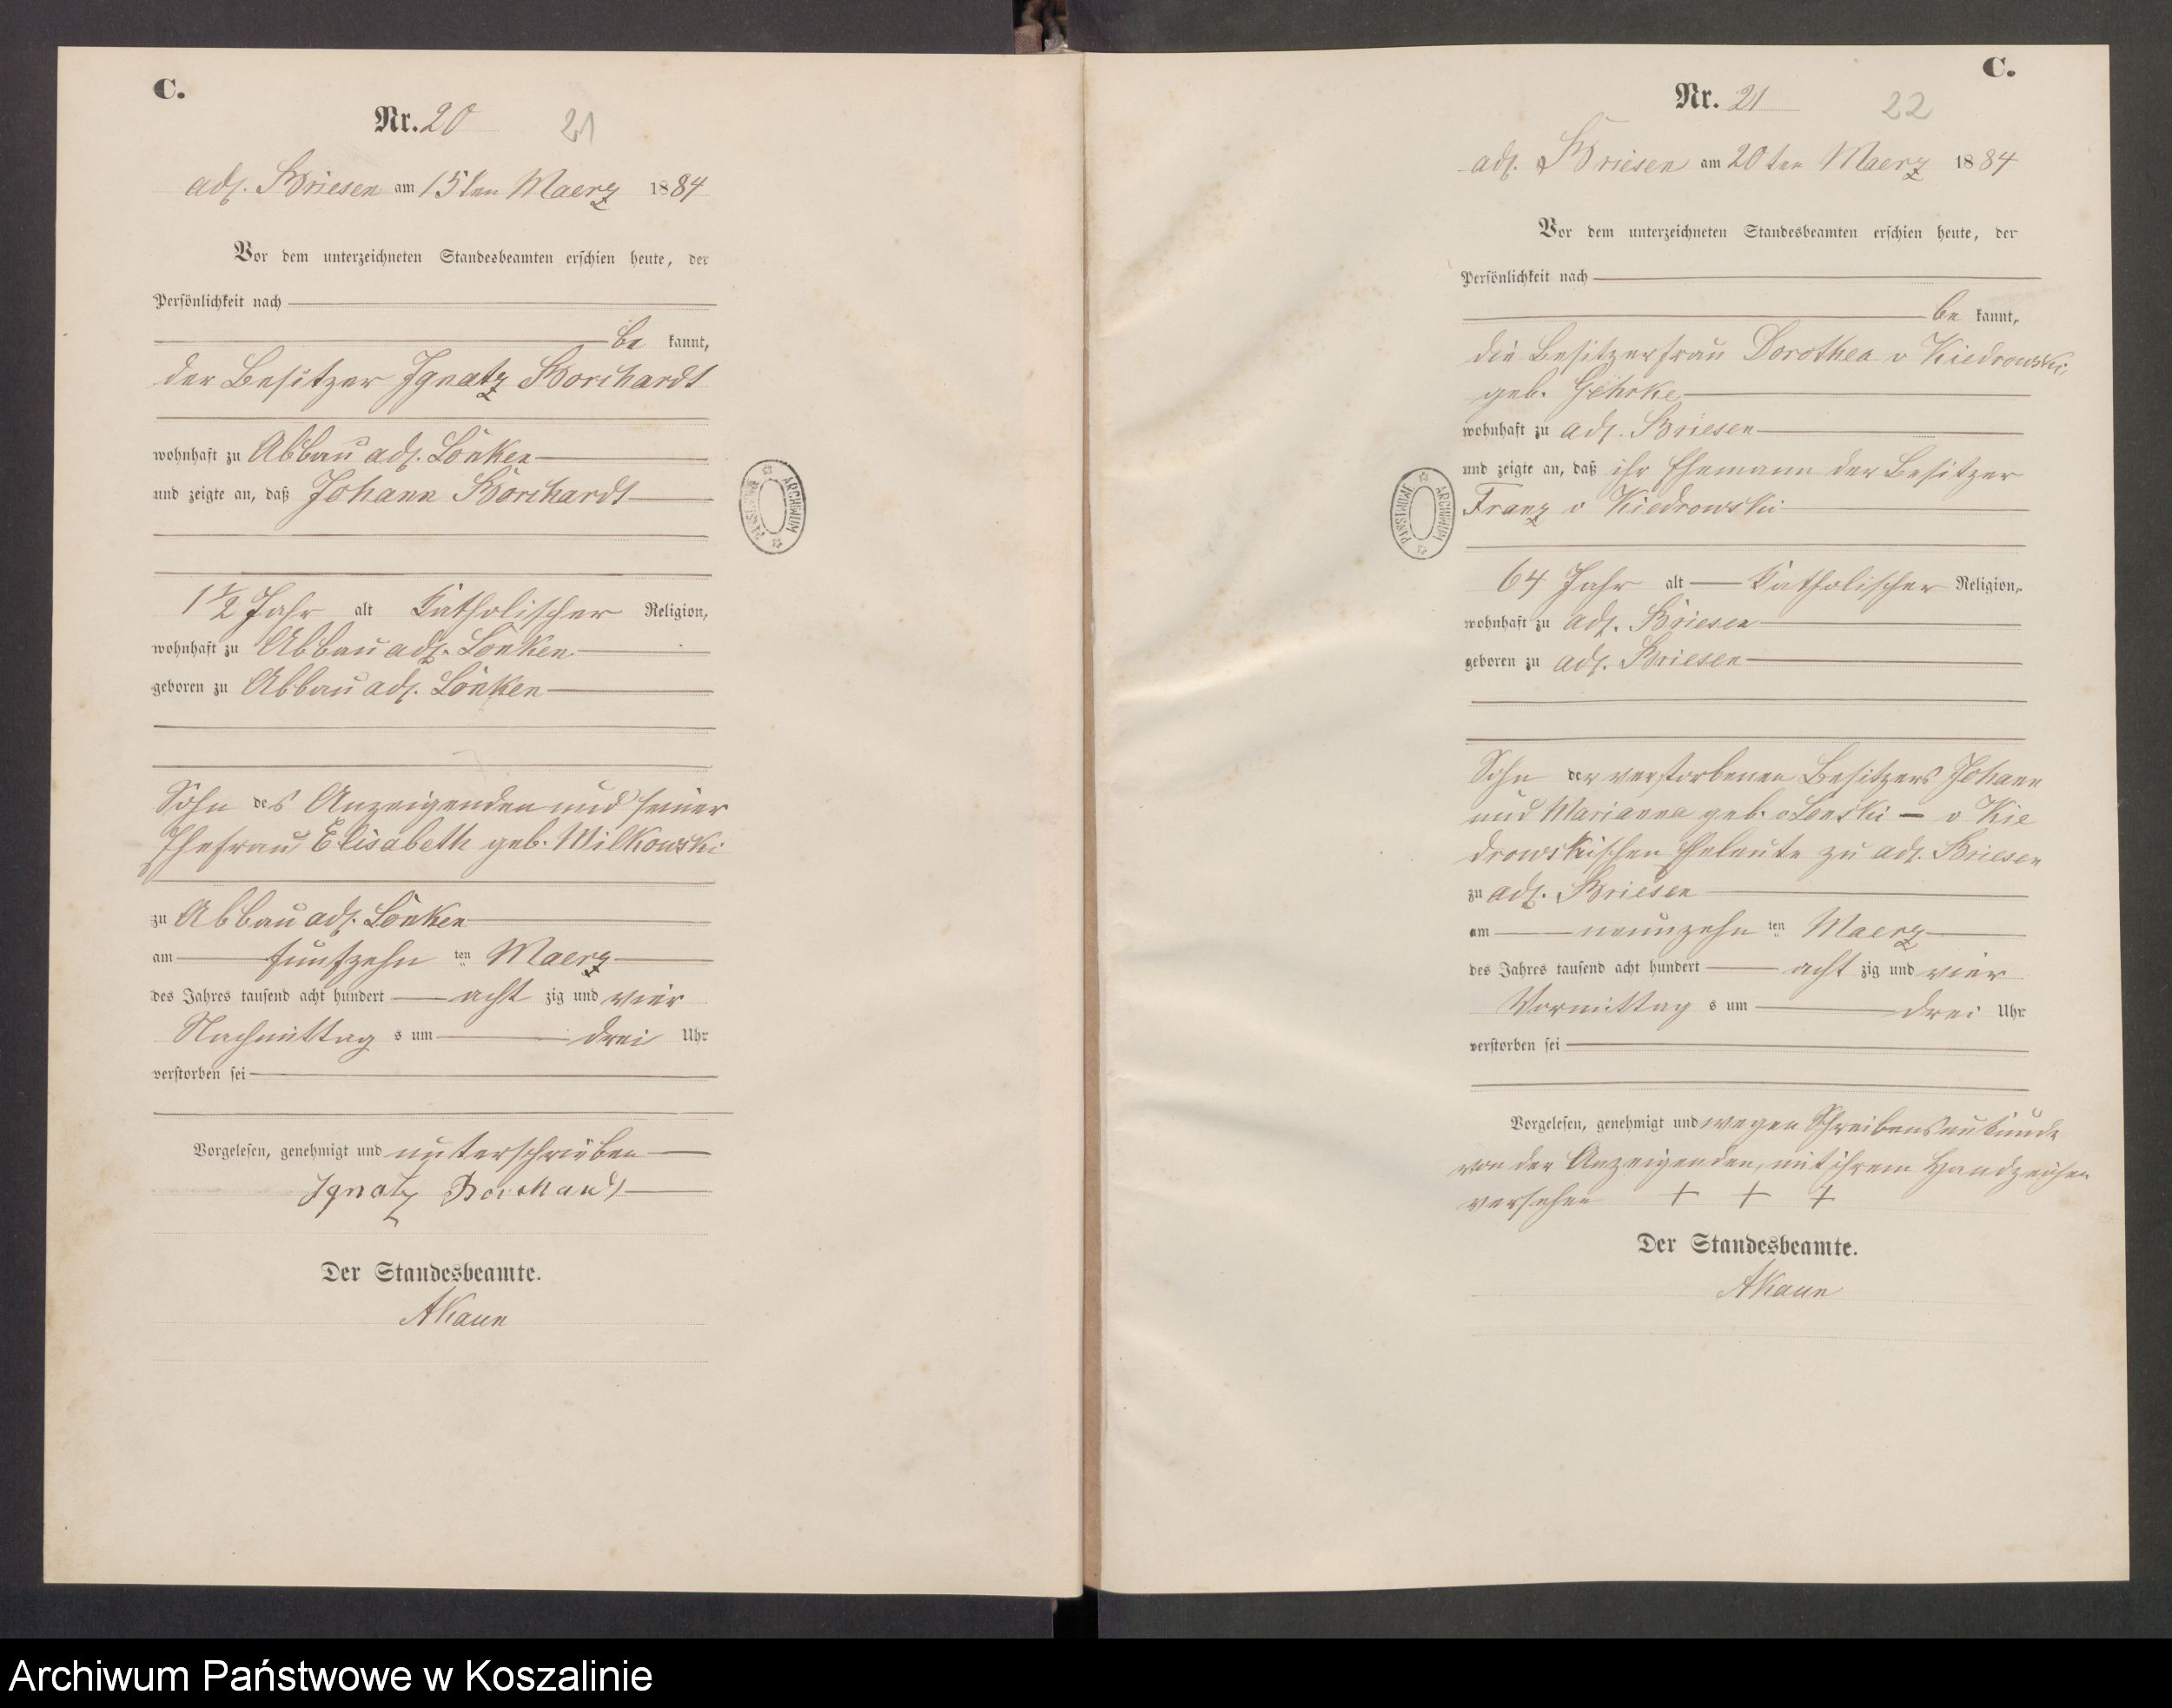 C.
Nr. 20 21
adl. Briesen am 15ten Maerz 1884
Vor dem unterzeichneten Standesbeamten erschien heute, der
Persönlichkeit nach
be kannt,
der Besitzer Ignatz Borchardt
wohnhaft zu Abbau adl. Lonken
und zeigte an, daß Johann Borchardt
1 1/2 Jahr alt Katholischer Religion,
wohnhaft zu Abbau adl. Lonken
geboren zu Abbau adl. Lonken
Sohn des Anzeigenden und seiner
Ehefrau Elisabeth geb. Milkowski
zu Abbau adl. Lonken
am funfzehn ten Maerz
des Jahres tausend acht hundert acht zig und vier
Nachmittag s um drei Uhr
verstorben sei
Vorgelesen, genehmigt und unterschrieben
Ignatz Borchardt
Der Standesbeamte.
AKaun
ARCHIWUM PAŃSTWOWE
C.
Nr. 21 22
adl. Briesen am 20ten Maerz 1884
Vor dem unterzeichneten Standesbeamten erschien heute, der
Persönlichkeit nach
be kannt,
die Besitzerfrau Dorothea v Kiedrowski,
geb. Gehrke
wohnhaft zu adl. Briesen
und zeigte an, daß ihr Ehemann der Besitzer
Franz v Kiedrowski
64 Jahr alt Katholischer Religion,
wohnhaft zu adl. Briesen
geboren zu adl. Briesen
Sohn der verstorbenen Besitzers Johann
und Marianna geb. v Lonski – v Kie
drowskischen Eheleute zu adl. Briesen
zu adl. Briesen
am neunzehn ten Maerz
des Jahres tausend acht hundert acht zig und vier
Vormittag s um drei Uhr
verstorben sei
Vorgelesen, genehmigt und wegen Schreibensunkunde
von der Anzeigenden, mit ihrem Handzeichen
versehen + + +
Der Standesbeamte.
AKaun
ARCHIWUM PAŃSTWOWE
Archiwum Państwowe w Koszalinie